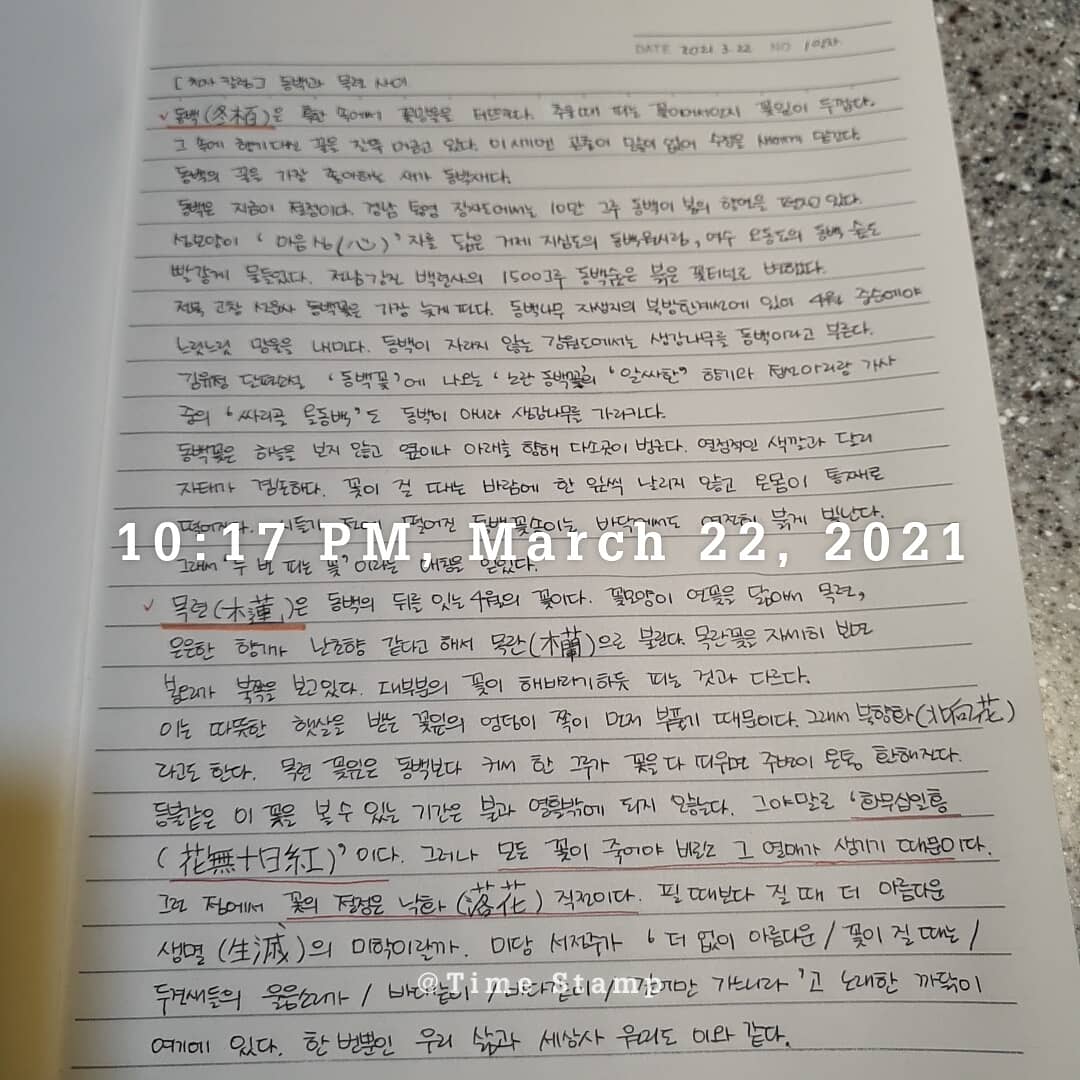 DATE 2021 3.22 NO 1일차
[천자 칼럼] 동백과 목련 사이
✓ 동백(冬栢)은 속에서 꽃망울을 터뜨린다. 추울 때 피는 꽃이어서인지 꽃잎이 두껍다.
그 속에 향기 대신 꿀을 잔뜩 머금고 있다. 이 시기엔 곤충이 많이 없어 수정을 새에게 맡긴다.
동백의 꿀을 가장 좋아하는 새가 동박새다.
동백은 지금이 절정이다. 경남 통영 장사도에서는 10만 그루 동백이 봄의 향연을 펼치고 있다.
섬모양이 '마음 심(心)'자를 닮은 거제 지심도의 동백원시림, 여수 오동도의 동백 숲도
빨갛게 물들었다. 전남 강진 백련사의 1500그루 동백숲은 붉은 꽃터널로 변했다.
전북 고창 선운사 동백꽃은 가장 늦게 핀다. 동백나무 자생지의 북방한계선에 있어 4월 중순에야
느릿느릿 망울을 내민다. 동백이 자라지 않는 강원도에서는 생강나무를 동백이라고 부른다.
김유정 단편소설 '동백꽃'에 나오는 '노란 동백꽃'의 '알싸한' 향기와 정선아리랑 가사
중의 '싸리골 올동백'도 동백이 아니라 생강나무를 가리킨다.
동백꽃은 하늘을 보지 않고 옆이나 아래를 향해 다소곳이 벙근다. 열정적인 색깔과 달리
자태가 겸손하다. 꽃이 질 때는 바람에 한 잎씩 날리지 않고 온몸이 통째로
떨어진다. 떨어진 동백꽃송이는 바닥에서도 여전히 붉게 빛난다.
10:17 PM, March 22, 2021
그래서 '두 번 피는 꽃'이라는 애칭을 얻었다.
✓ 목련(木蓮)은 동백의 뒤를 잇는 4월의 꽃이다. 꽃모양이 연꽃을 닮아서 목련,
은은한 향기가 난초향 같다고 해서 목란(木蘭)으로 불린다. 목란꽃을 자세히 보면
봉오리가 북쪽을 보고 있다. 대부분의 꽃이 해바라기하듯 피는 것과 다르다.
이는 따뜻한 햇살을 받는 꽃잎의 엉덩이 쪽이 먼저 부풀기 때문이다. 그래서 북향화(北向花)
라고도 한다. 목련 꽃잎은 동백보다 커서 한 그루가 꽃을 다 피우면 주변이 온통 환해진다.
등불같은 이 꽃을 볼 수 있는 기간은 불과 열흘밖에 되지 않는다. 그야말로 '화무십일홍
(花無十日紅)'이다. 그러나 모든 꽃이 죽어야 비로소 그 열매가 생기기 때문이다.
그런 점에서 꽃의 절정은 낙화(落花) 직전이다. 필 때보다 질 때 더 아름다운
생멸(生滅)의 미학이랄까. 미당 서정주가 '더 없이 아름다운 / 꽃이 질 때는 /
@Time Stamp
두견새들의 울음소리가 / 바다같이 / 바다같이 / 깊어만 가느니라'고 노래한 까닭이
여기에 있다. 한 번뿐인 우리 삶과 세상사 유미도 이와 같다.